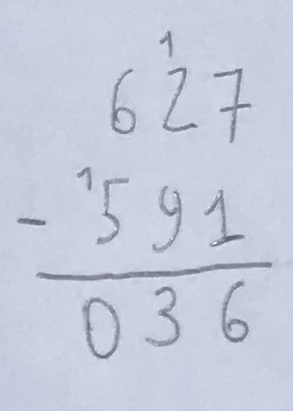 1
627
- ¹591
036